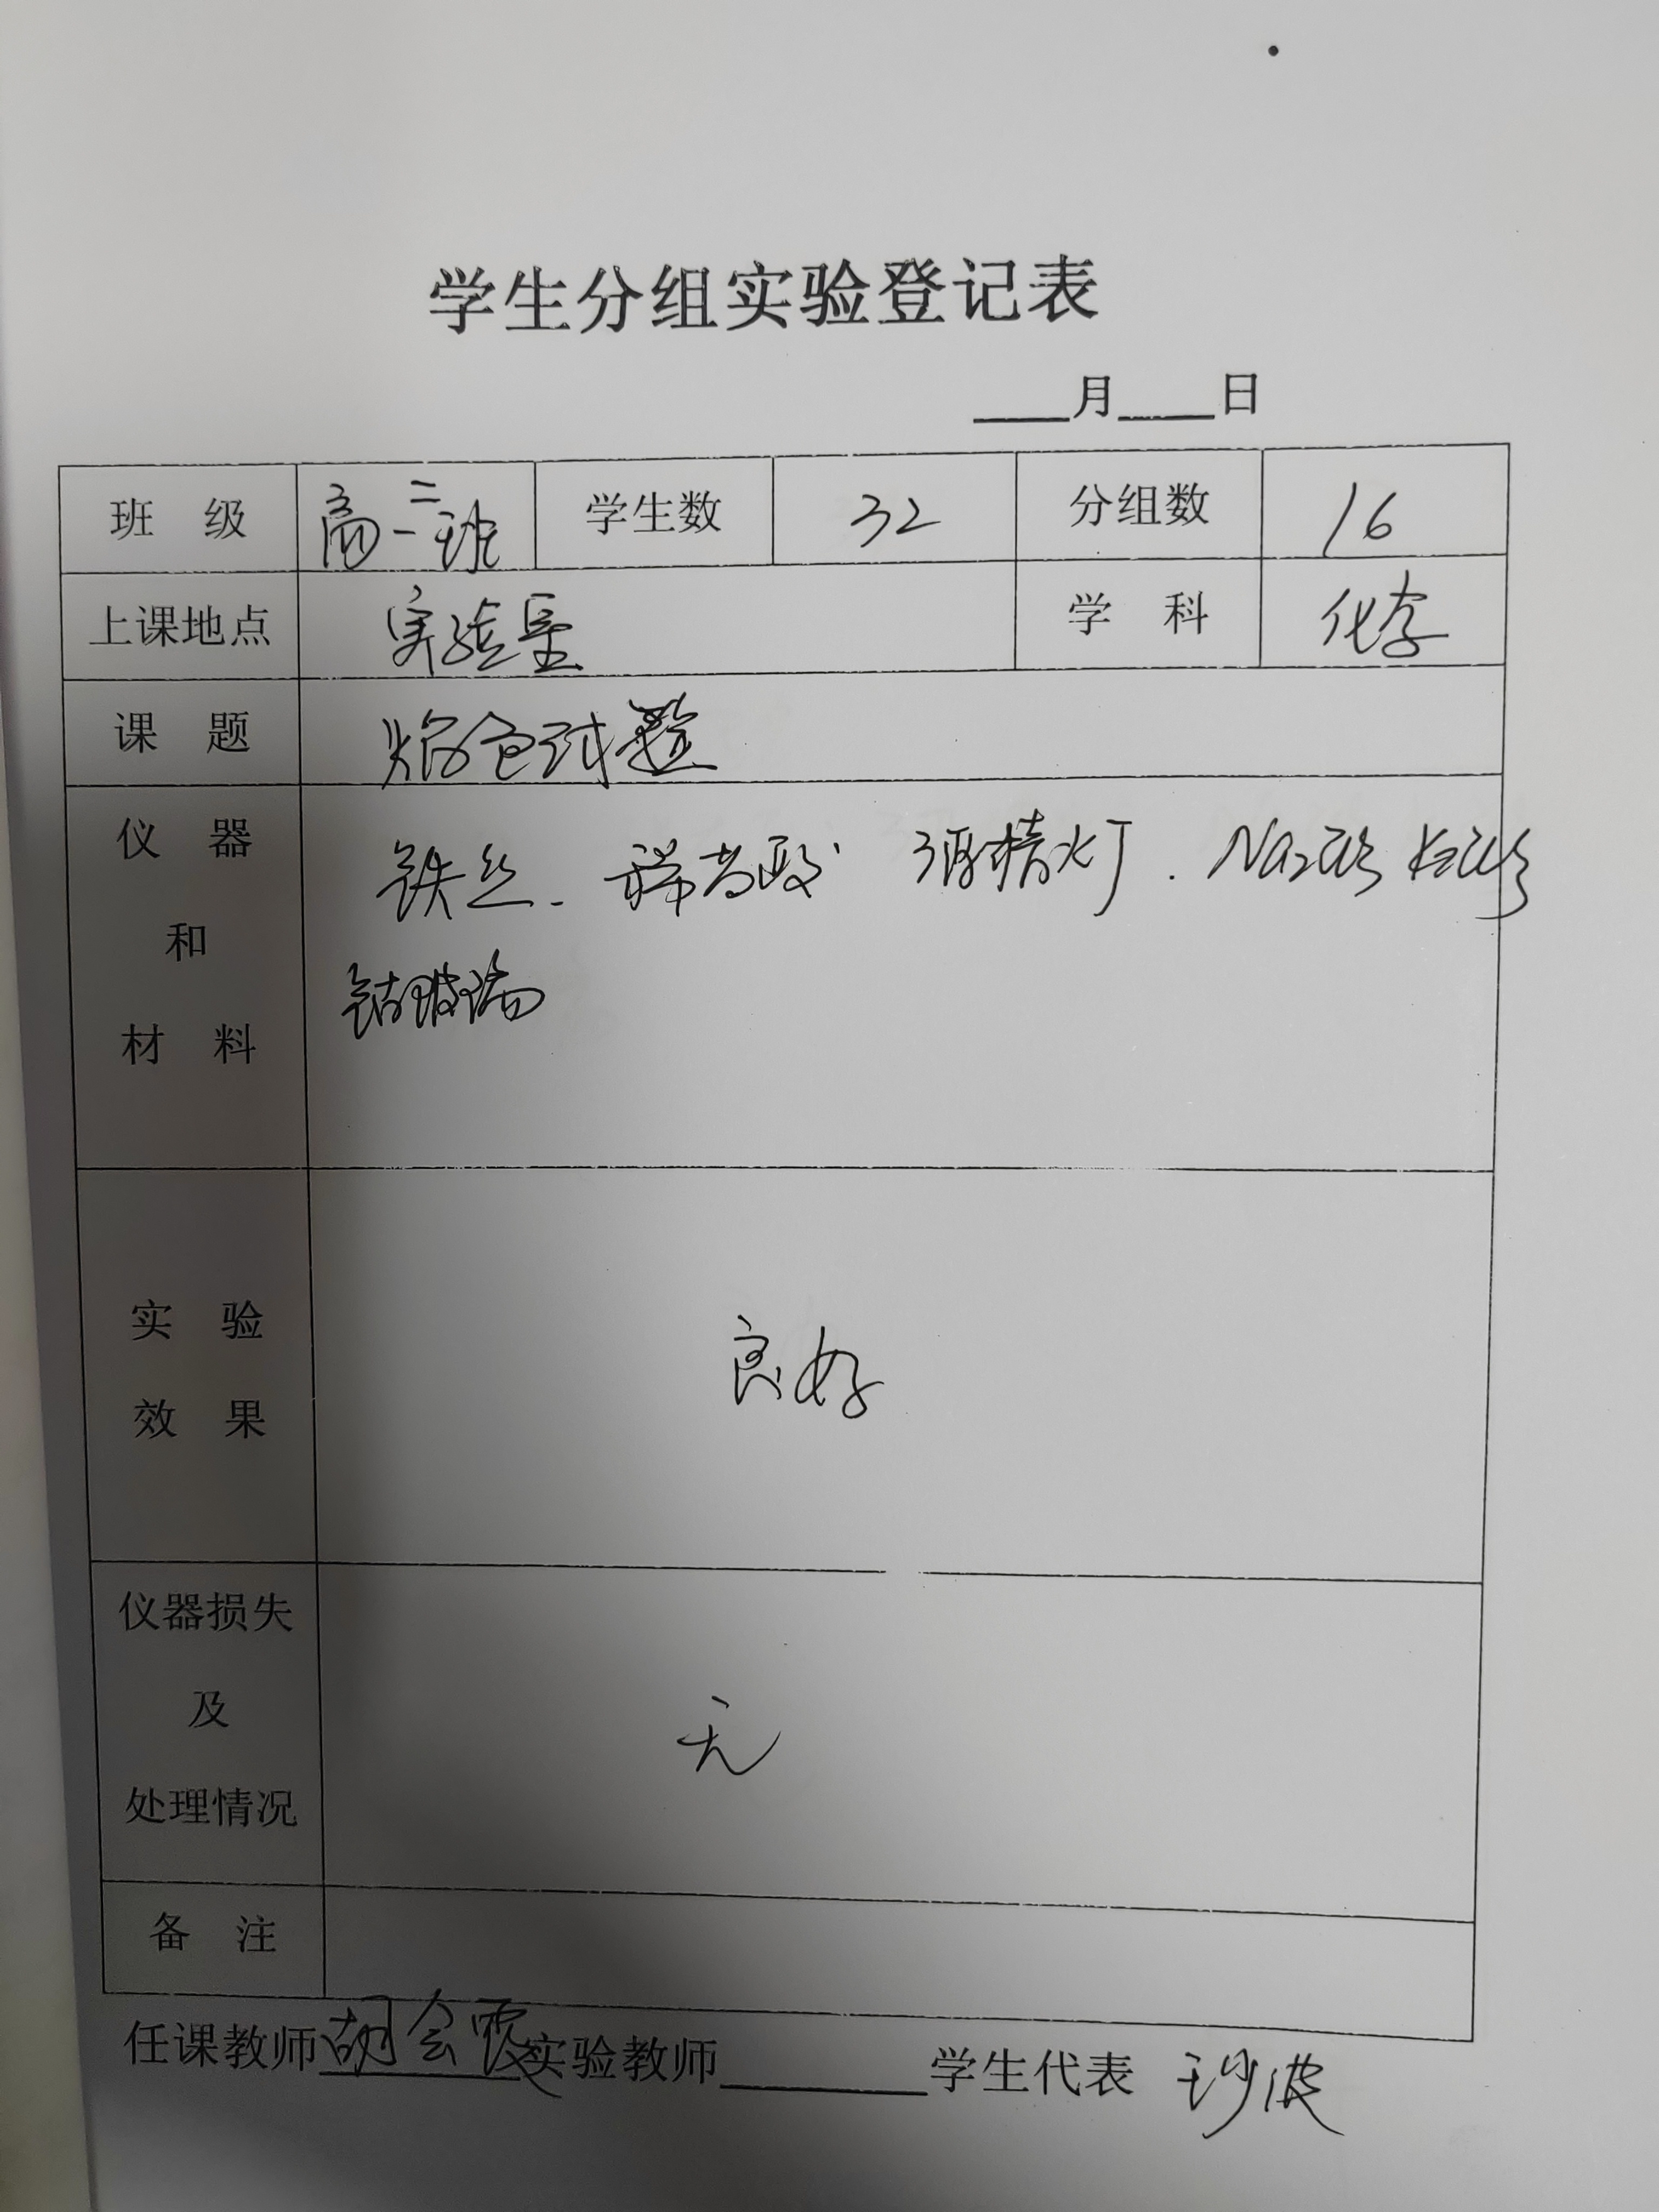 学生分组实验登记表
___月___日
班 级 高一二班 学生数 32 分组数 16
上课地点 实验室 学 科 化学
课 题 焰色试验
仪 器 和 材 料 铁丝、稀盐酸 酒精灯. Na₂CO₃ K₂CO₃
钴玻璃
实 验 效 果 良好
仪器损失 及 处理情况 无
备 注
任课教师 胡会霞 实验教师______学生代表